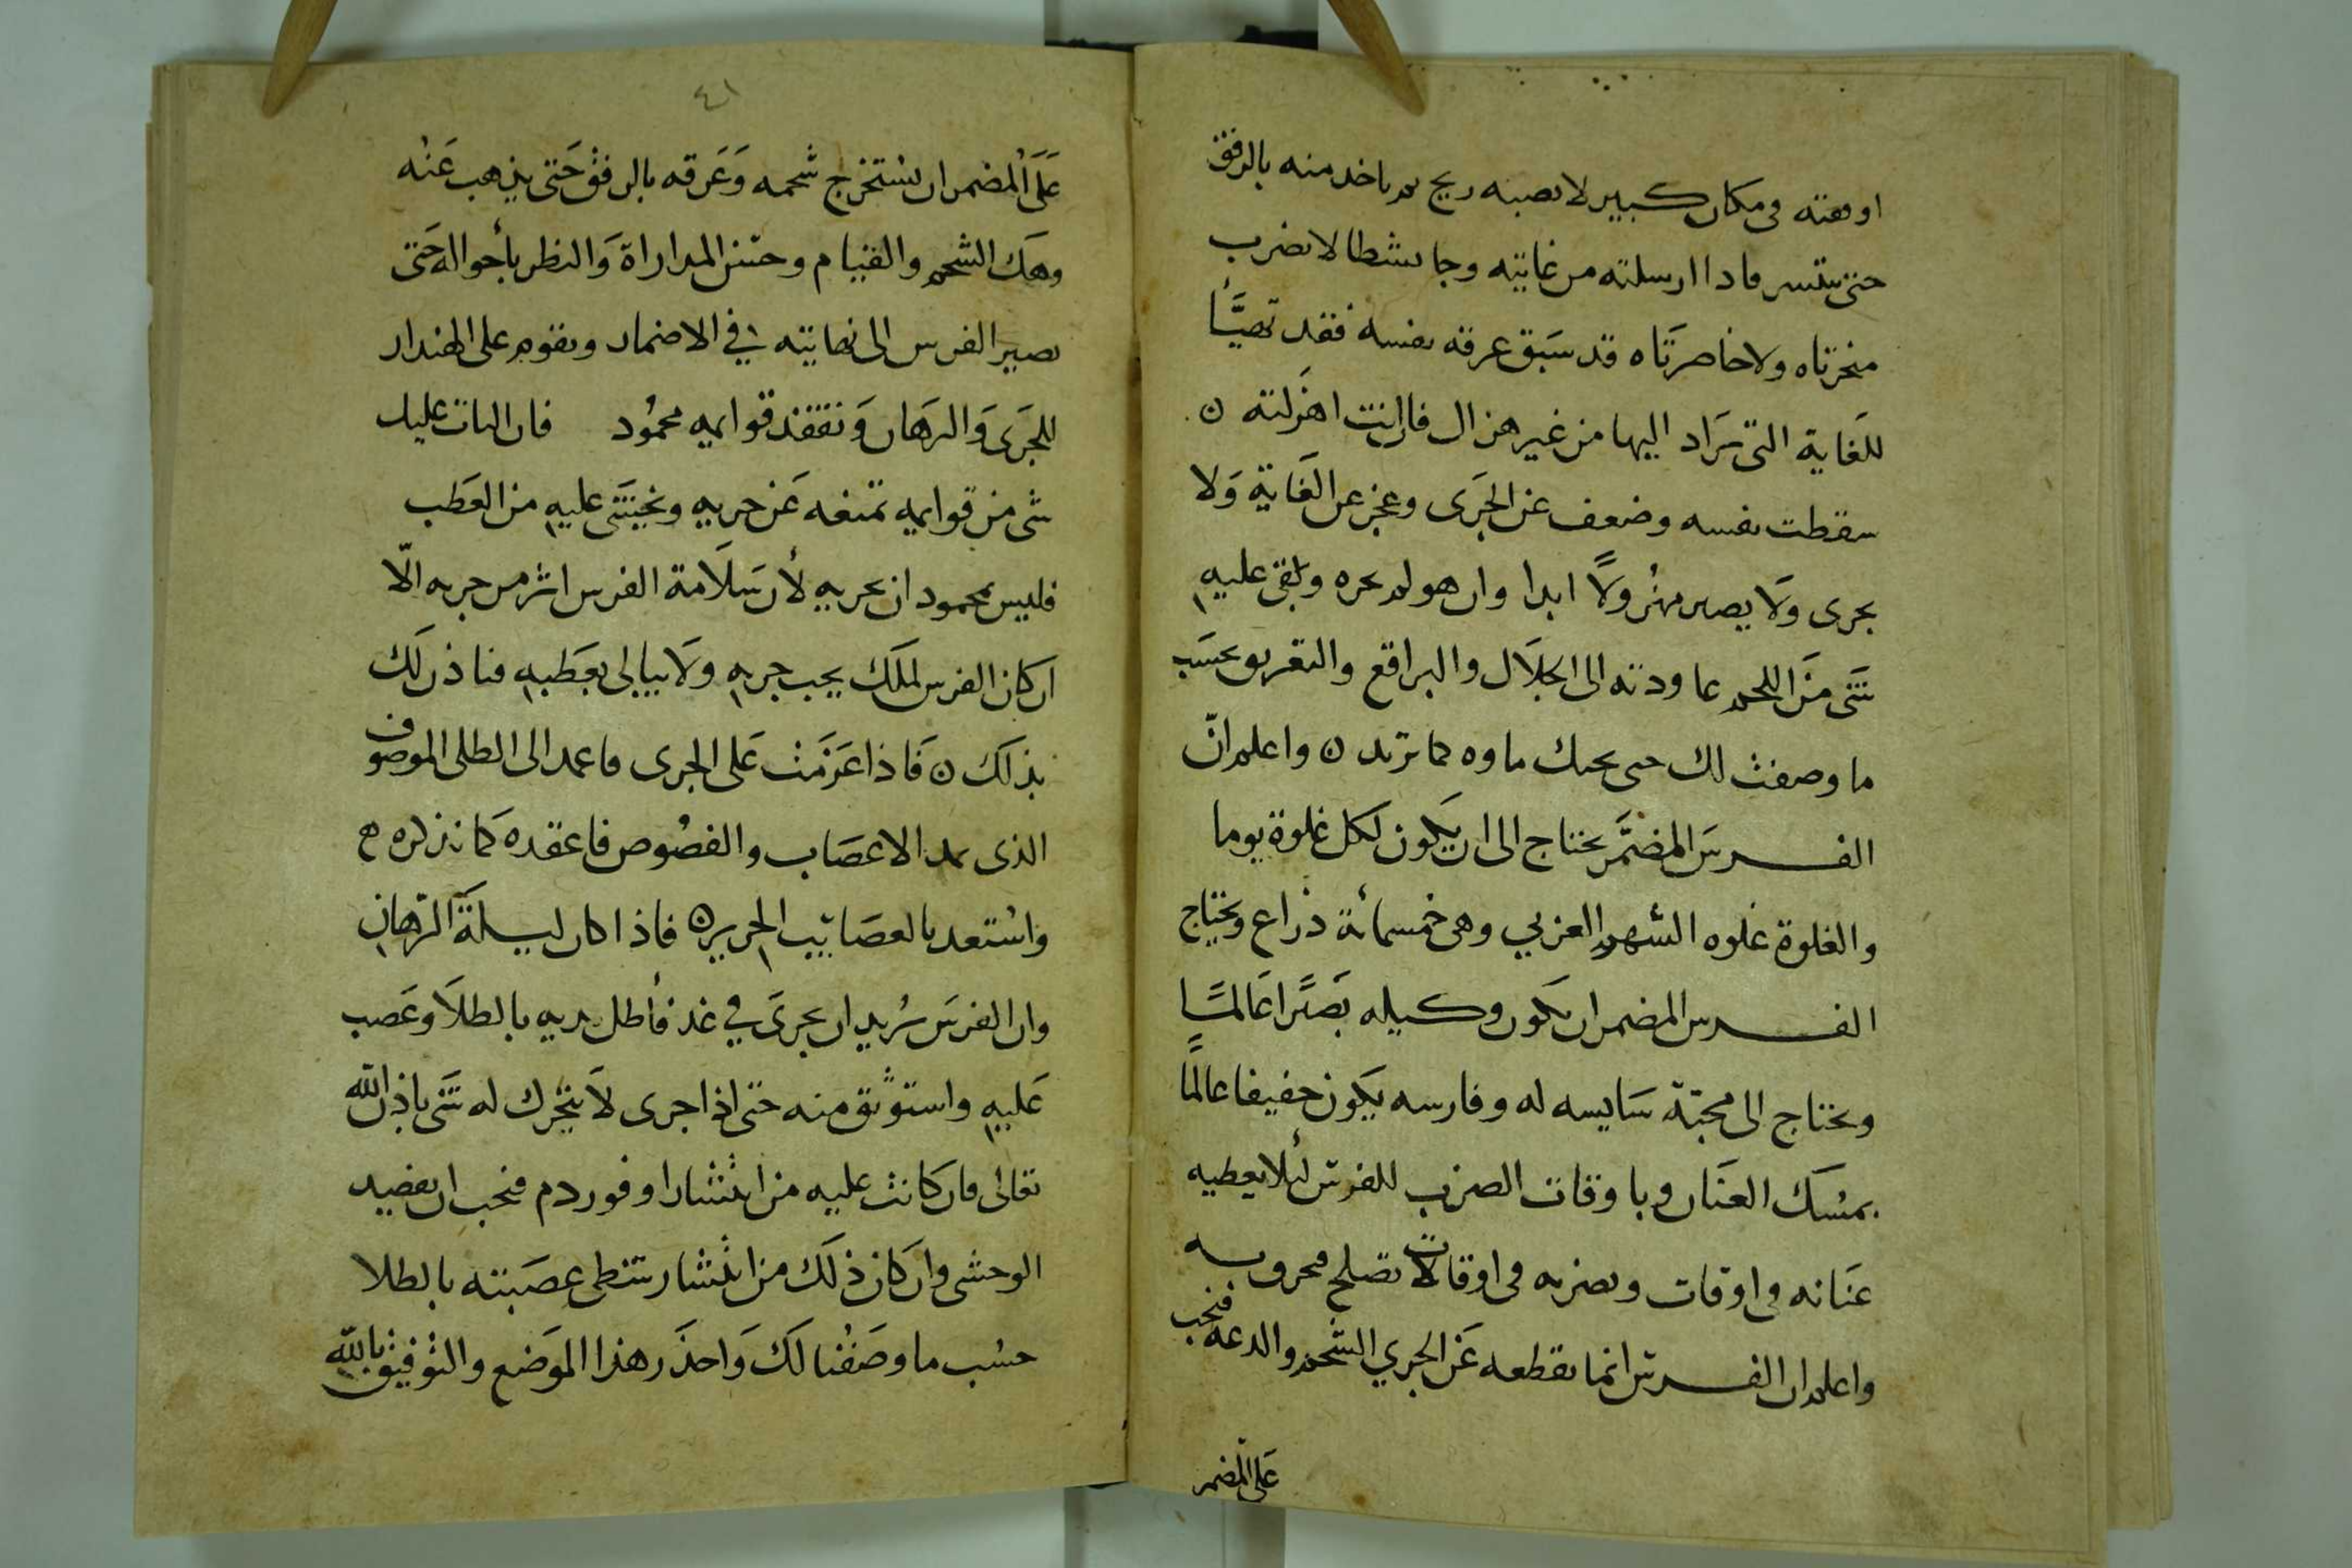 اوقفته في مكان كبير لا تصبه ريح ثم تاخد منه بالرفق
حتى يتنسر فادا ارسلته من غايته وجا نشطا لا تضرب
منخرتاه ولا خاصرتاه قد سَبَق عرقه نفسه فقد تهيَّأ
للغاية التي يُرَاد اليها من غير هزال فان انت اهزلته ن
سقطت نفسه وضعف عن الجَرَى وعجز عن الغَاية وَلا
يجرى وَلَا يصير مهزُولًا ابدا وان هو لم يجره وبقى عليهِ
شَىْ مِنَ اللحم عاودته الى الجلَال والبراقع والتعريق بحسَب
ما وصفت لك حتى ماوه كما تريد ن واعلم انّ
الفرسَ المضمَّر يحتاج الى ان يكون لكل غلوة يوما
والغلوة غلوه السهم العربي وهى خمسمائة ذراع ويحتاج
الفرس المضمر ان يكون وكيله بَصيرًا عَالمًا
ويحتاج الى محبّة سَايسه له وفارسه يكون خفيفا عالمًا
بمسَك العنَان وباوقات الضرب للفرس لئلا يعطيه
عنَانه في اوقات ويضربه في اوقات لا تصلح
واعلم ان الفرس انما يقطعه عَن الجري الشحم والدعه فيجب
عَلى المضمر
٤١
عَلَى المُضمر ان يستخرج شحمه وَعَرقه بالرفق حَتى يذهب عَنْه
وهَك الشحم والقيام وحسن المداراة وَالنظر بأحواله حَتى
يصير الفرس الى نهايته في الاضمار ويقوم على الهندار
للجَرَى وَالرهَان وَتفقد قوايمه محمُود فان البات عليك
شى من قوايمه تمنعه عَن جريهِ ويخشَى عليهِ من العَطب
فليس بمحمود ان تجريهِ لأن سَلَامة الفرس اثر من جريه الّا
ان كان الفرس لملك يحب جريهِ ولَا يبالى بعَطبهِ فناذن لك
بذلك ن فَاذا عَزَمت عَلى الجرى فاعمد الى الطلى الموصوف
الذى الاعصَاب والفصُوص فاعقده كما نذكره ه
واسْتعد بالعصَائيب الحرير ن فاذا كان ليلَة الرّهان
وان الفرسَ تُريد ان يجرىَ في غد فأطل يديه بالطلَا وعَصب
عَليهِ واستوثق منه حتى اذا جرى لَا يتحرك له شَى باذن الله
تعالى فان كانت عليه من انتشار او فور دم فيجب ان تفصد
الوحشى وان كان ذلك من انتشار شظى عصَبته بالطلا
حسْب ما وصَفْنا لك وَاحذَر هذا الموَضع والتوفيق بالله